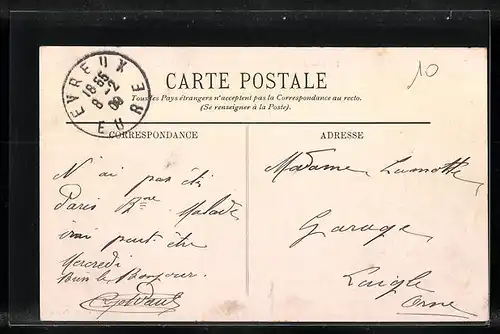 10
EVREUX
18 55
8 -2
06
EURE
CARTE POSTALE
Tous les Pays étrangers n'acceptent pas la Correspondance au recto.
(Se renseigner à la Poste).
CORRESPONDANCE
N'ai pas été
Paris Malade
irai peut être
Mercredi
Bonjour.
ADRESSE
Madame Lamotte
Garage
Laigle
Orne